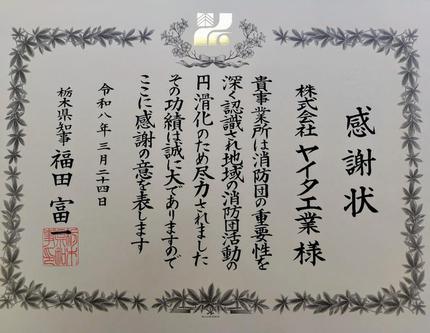 感謝状
株式会社 ヤイタ工業 様
貴事業所は消防団の重要性を
深く認識され地域の消防団活動の
円滑化のため尽力されました
その功績は誠に大でありますので
ここに感謝の意を表します
令和八年三月二十四日
栃木県知事 福田富一